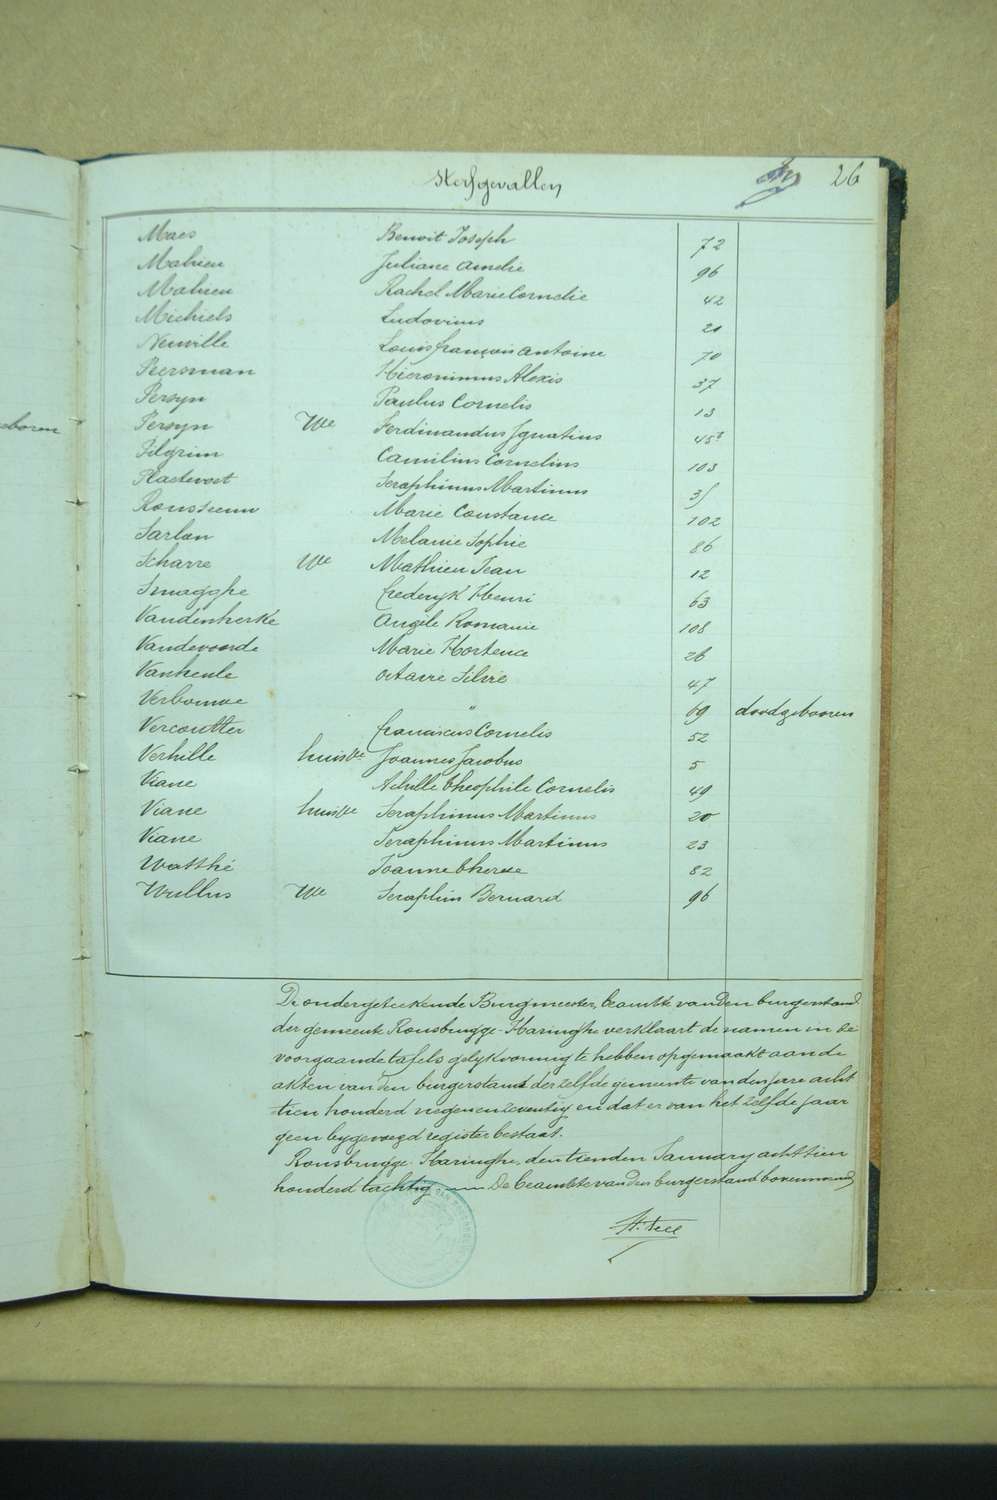 Sterfgevallen 26
Maes Benoit Joseph 72
Mahieu Juliane Amelie 96
Mahieu Rachel Marie Cornelie 42
Michiels Ludovicus 21
Neuville Louis françois Antoine 70
Persman Hieronimus Alexis 37
Persyn Paulus Cornelis 13
Persyn Wwe Ferdinandus Ignatius 45
Pilgrim Camilius Cornelius 103
Plaetevoet Seraphinus Martinus 31
Rousseeuw Marie Constance 102
Sarlon Melanie Sophie 86
Scharre Wwe Mathieu Jean 12
Smagghe frederyk Henri 63
Vandenherke Angèle Romanie 108
Vandevoorde Marie Hortence 26
Vanheule Octavie Silvie 47
Verbouwe " 69 doodgebooren
Vercoutter franciscus Cornelis 52
Verhille huisve Joannes Jacobus 5
Viane Achille théophile Cornelis 49
Viane huisve Seraphinus Martinus 20
Viane Seraphinus Martinus 23
Watthé Joanne therese 82
Wullus Wwe Seraphin Bernard 96
eboren
De ondergeteekende Burgmeester, beambte van den burgerstand
der gemeente Rousbrugge-Haringhe verklaart de namen in de
voorgaande tafels gelykvormig te hebben opgemaakt aan de
akten van den burgerstand derzelfde gemeente van den jare acht
tien honderd negenenzeventig en dat er van het zelfde jaar
geen bygevoegd register bestaat.
Rousbrugge-Haringhe, den tienden January achttien
honderd tachtig De beambte van den burgerstand bovennoemd